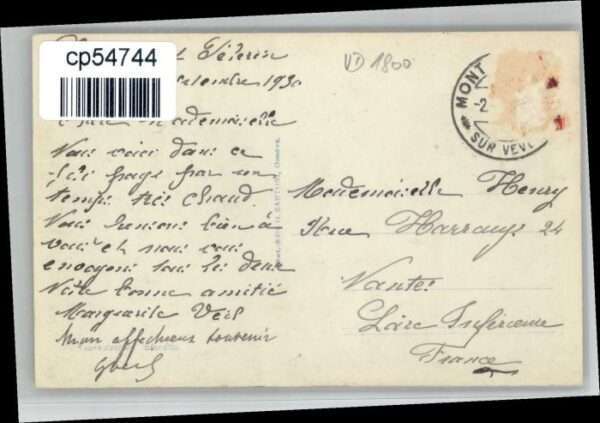 cp54744
VD 1800
Pélerin
1930
Mademoiselle
Vous voici dans ce
pays par un
temps très chaud.
Nous pensons bien à
vous et nous vous
envoyons tous les deux
Notre bonne amitié
Marguerite Veil
Mon affectueux souvenir
MONT
-2
SUR VEVEY
Mademoiselle Henry
Rue Harrouys 24
Nantes
Loire Inférieure
France